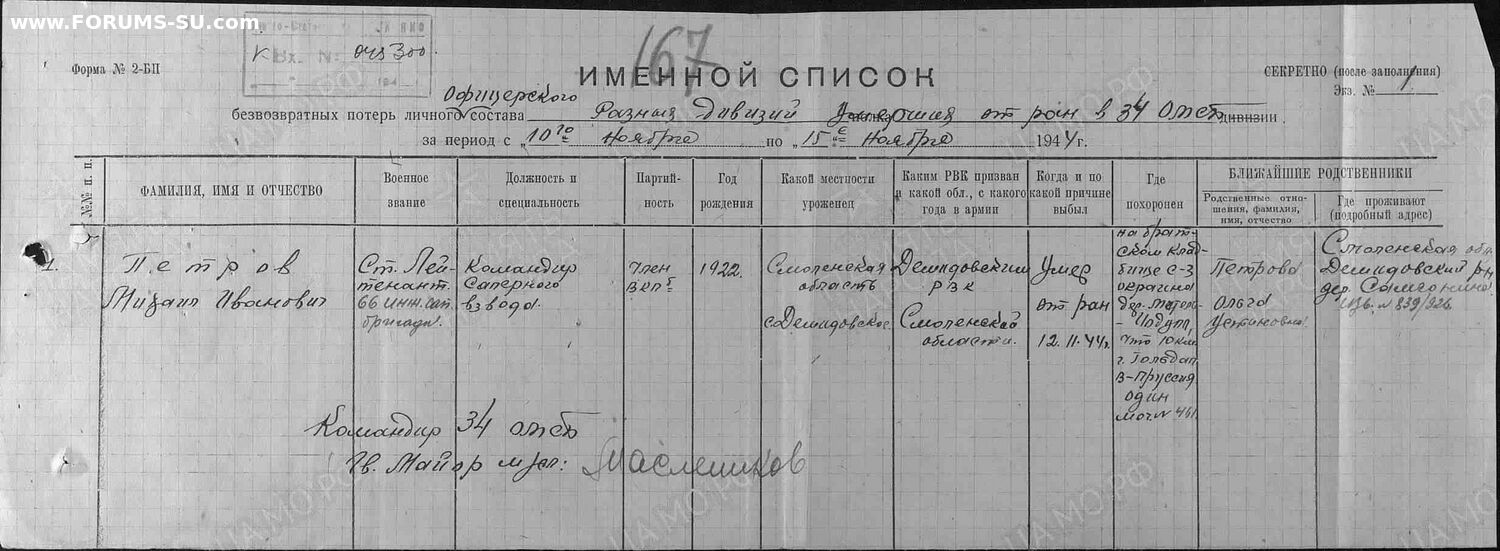 www.FORUMS-SU.com
Вх. №
167
Форма № 2-БП
ИМЕННОЙ СПИСОК
СЕКРЕТНО (после заполнения)
Экз. № 1
офицерского
безвозвратных потерь личного состава Разных дивизий Умерших от ран в 34 омсб дивизии.
за период с „10го ноября по „15е ноября 1944 г.
№№ п. п.
ФАМИЛИЯ, ИМЯ И ОТЧЕСТВО
Военное звание
Должность и специальность
Партийность
Год рождения
Какой местности уроженец
Каким РВК призван и какой обл., с какого года в армии
Когда и по какой причине выбыл
Где похоронен
БЛИЖАЙШИЕ РОДСТВЕННИКИ
Родственные отношения, фамилия, имя, отчество
Где проживают (подробный адрес)
1.
Петров
Михаил Иванович
Ст. Лей-
тенант.
66 инж. сап.
бригады.
Командир
Саперного
взвода.
член
ВКПб
1922.
Смоленская
область
с Демидовское
Демидовским
РВК
Смоленской
области.
Умер
от ран
12.11.44г.
на брат-
ском клад-
бище с-з
окраина
что 10 км
г. Гольдап
В-Пруссия
один
мог. № 461.
Петрова
Ольга
Устиновна
Смоленская обл.
Демидовский р-н
дер.
изв. № 839/326
Командир 34 омсб
Гв. Майор м/сл: Масленников
ЦАМО.РФ